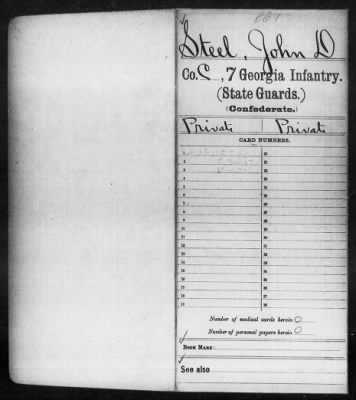 Steel, John D
Co. C, 7 Georgia Infantry.
(State Guards.)
(Confederate.)
Private Private
CARD NUMBERS.
1 20
2 21
3 22
4 23
5 24
6 25
7 26
8 27
9 28
10 29
11 30
12 31
13 32
14 33
15 34
16 35
17 36
18 37
19 38
Number of medical cards herein 0
Number of personal papers herein 0
BOOK MARK:
See also